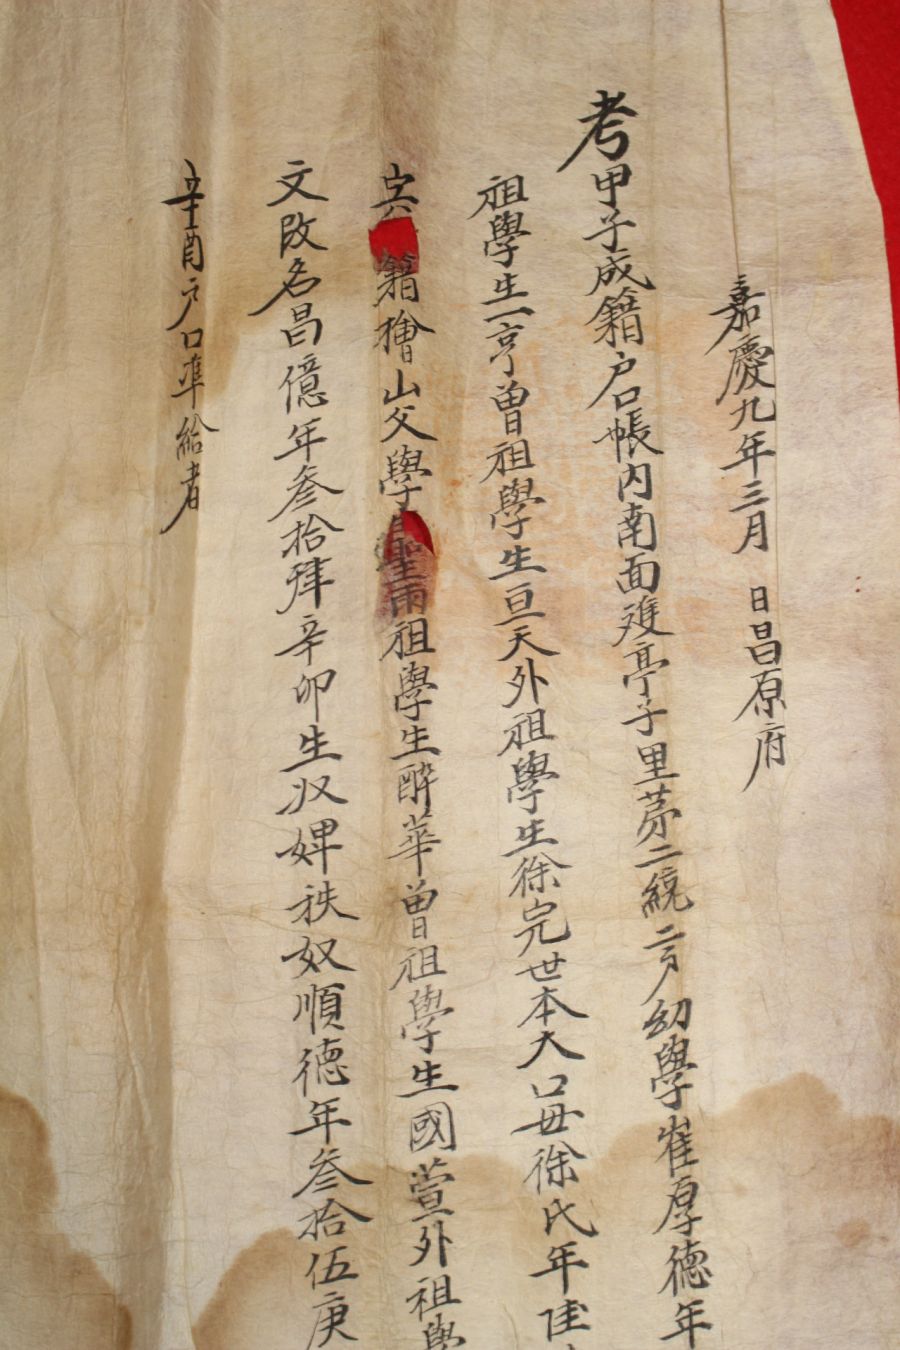 嘉慶九年三月 日昌原府
考甲子成籍户口帳內南面 亭子里苐二統二户幼學崔厚德年
祖學生一亨曾祖學生亘天外祖學生徐完世本大口母徐氏年陸
籍檜山父學 聖雨祖學生醉華曾祖學生國萱外祖學
文改名昌億年叁拾肆辛卯生奴婢秩奴順德年叁拾伍庚
辛酉户口準給者